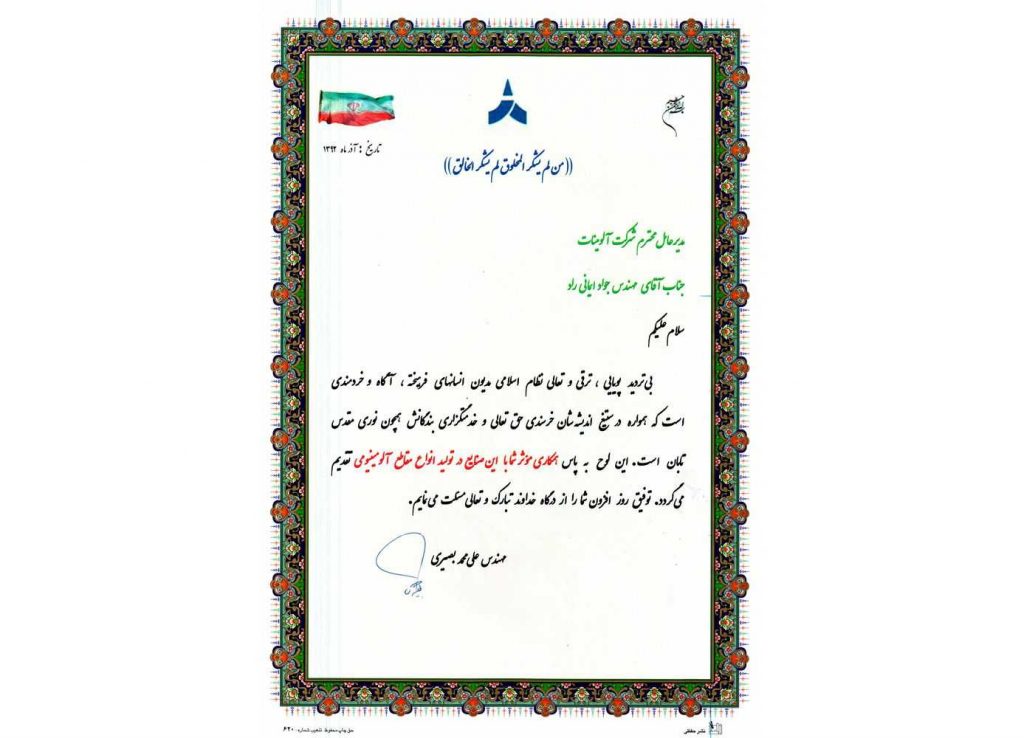 تاریخ : آذر ماه ۱۳۹۲
((من لم یشکر المخلوق لم یشکر الخالق))
مدیرعامل محترم شرکت آلومینات
جناب آقای مهندس جواد ایمانی راد
سلام علیکم
بی‌تردید پویایی ، ترقی و تعالی نظام اسلامی مدیون انسانهای فرهیخته ، آگاه و خردمندی
است که همواره در ستیغ اندیشه‌شان خرسندی حق تعالی و خدمتگزاری بندگانش همچون نوری مقدس
تابان است. این لوح به پاس همکاری مؤثر شما با این صنایع در تولید انواع مقاطع آلومینیومی تقدیم
می‌گردد. توفیق روز افزون شما را از درگاه خداوند تبارک و تعالی مسئلت می‌نمایم.
مهندس علی‌محمد بصیری
نشر حفظی
حق چاپ محفوظ تذهیب شماره : ۶۲۰